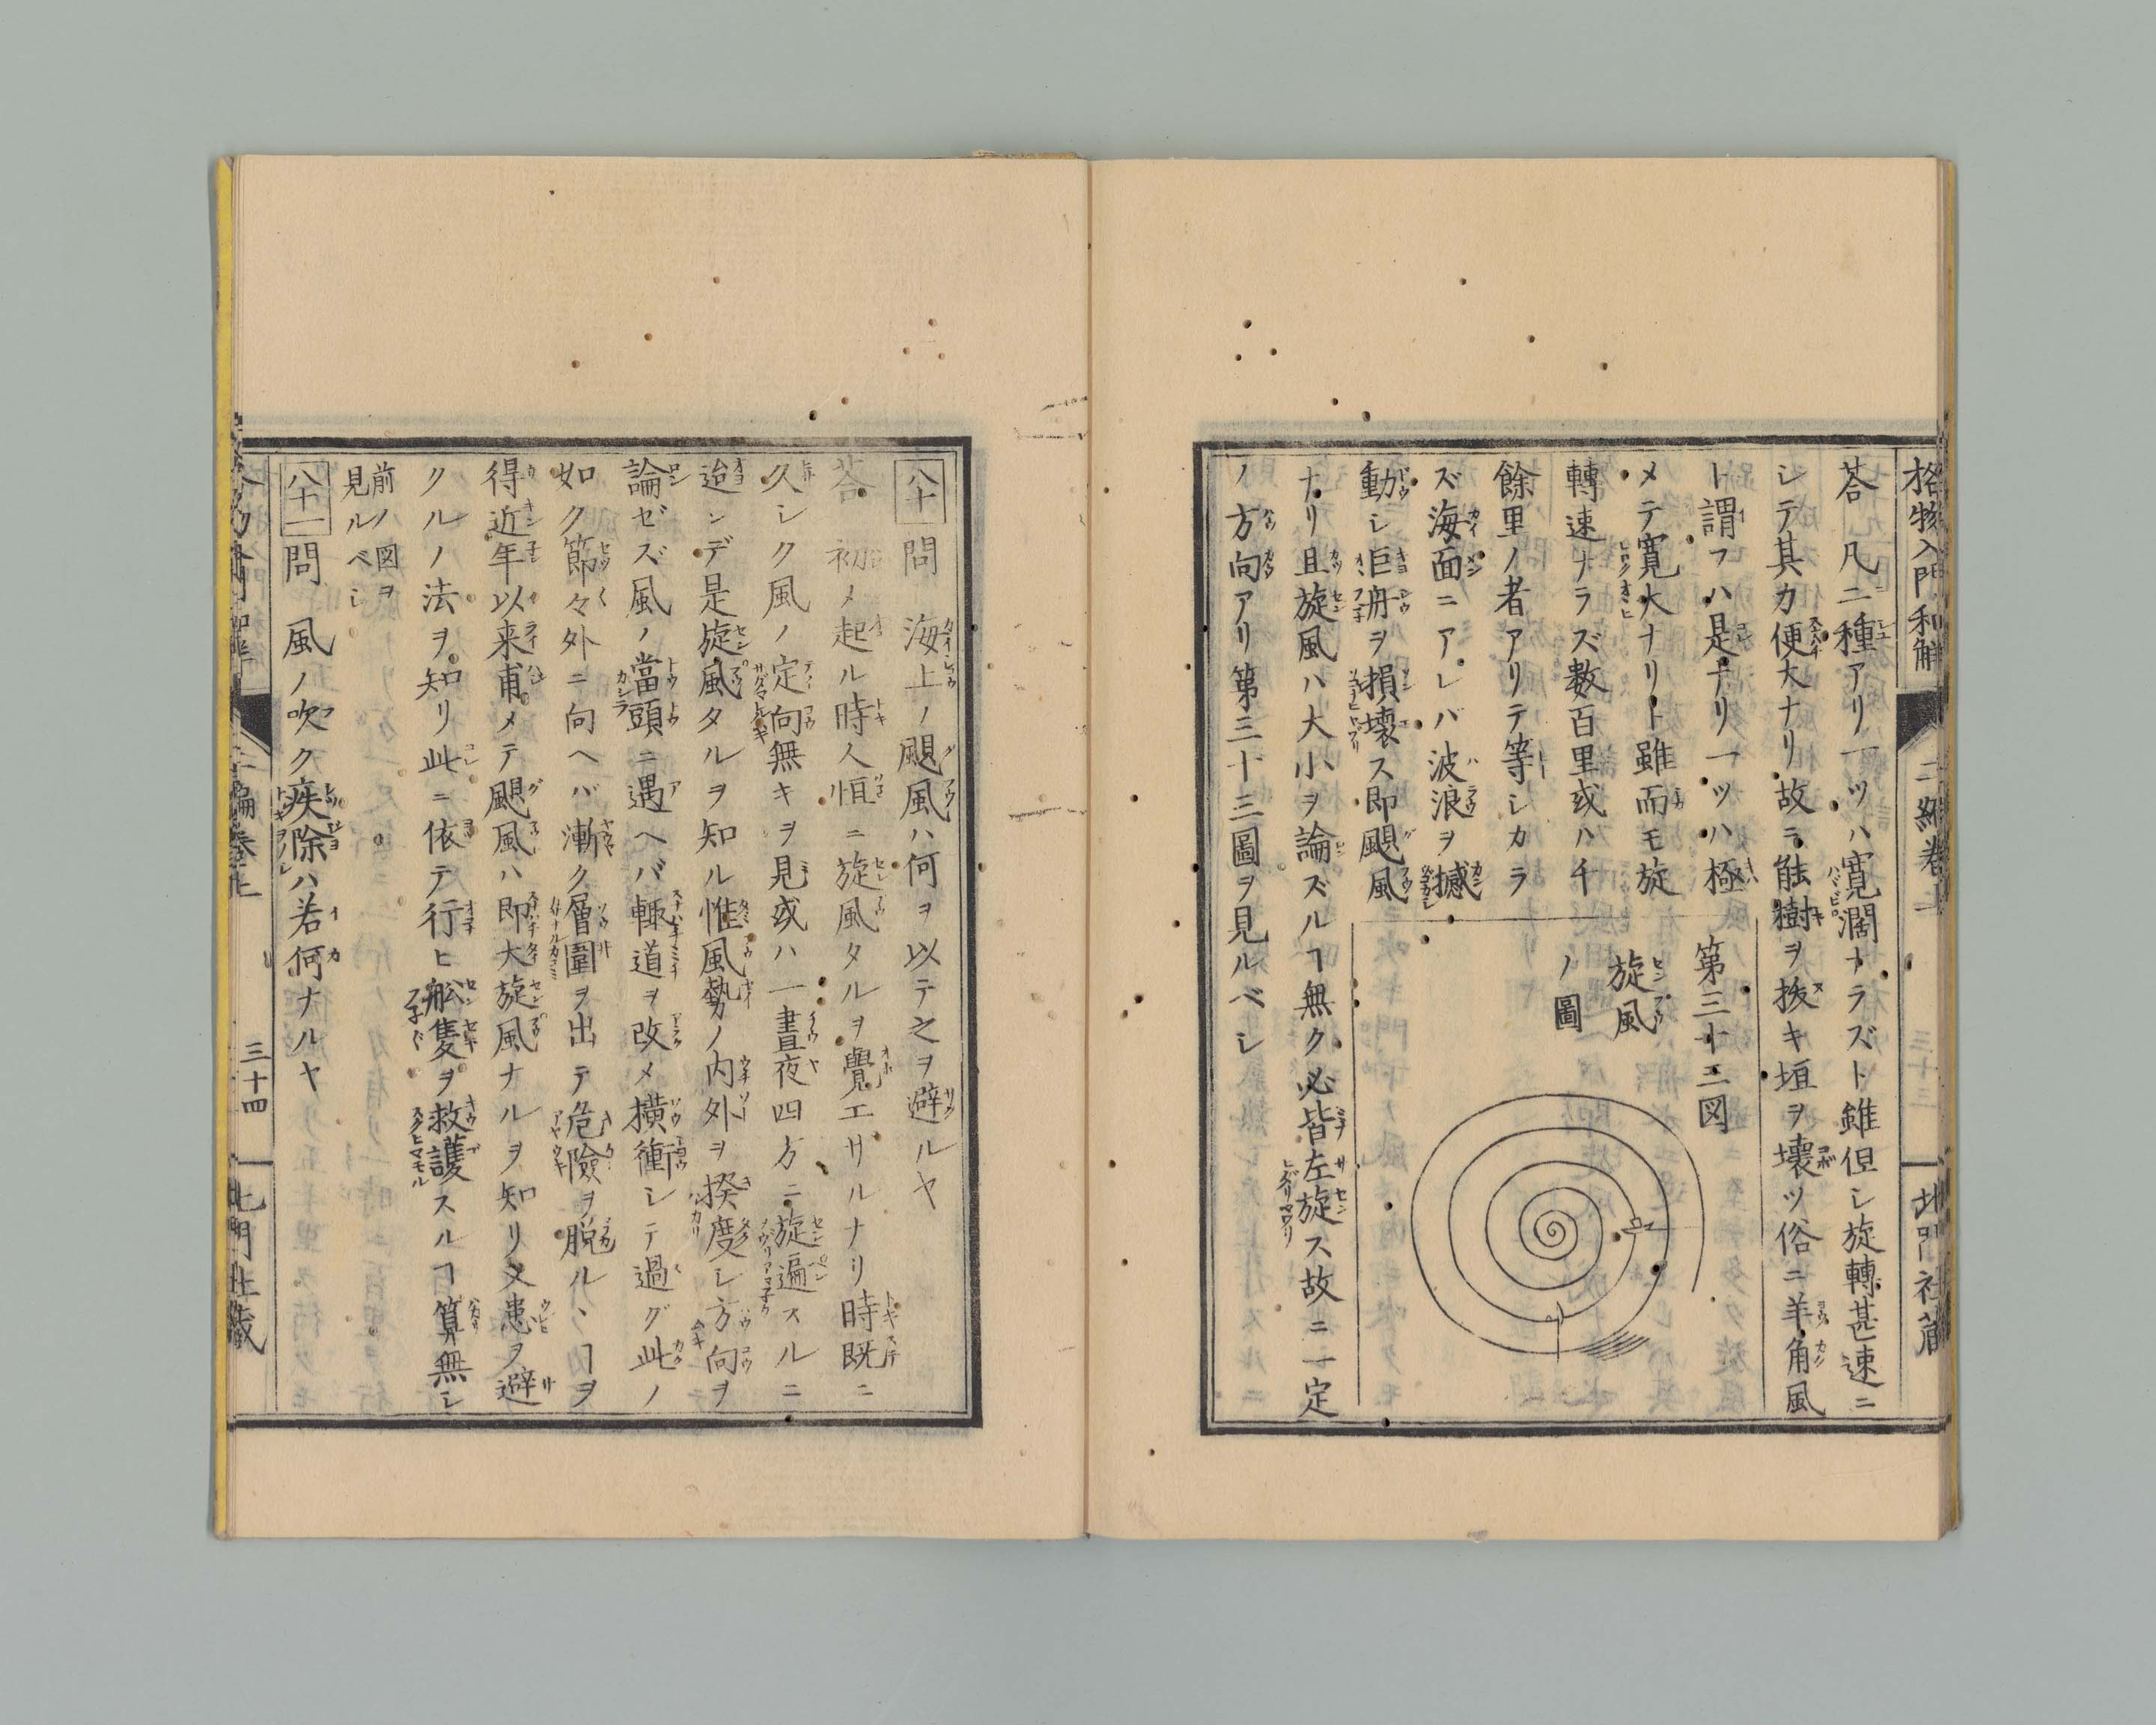 格物入門和解
二編巻上
三十三
北門社蔵
荅 凡ニ種アリ一ツハ寛濶ナラズト雖但シ旋轉甚速ニ
シテ其力便大ナリ故ニ能樹ヲ抜キ垣ヲ壊ツ俗ニ羊角風
ト謂フハ是ナリ一ツハ極
メテ寛大ナリト雖而モ旋
轉速ナラズ数百里或ハ千
餘里ノ者アリテ等シカラ
ズ海面ニアレバ波浪ヲ撼
動シ巨舟ヲ損壊ス即颶風
第三十三図
旋風
ノ圖
ナリ且旋風ハ大小ヲ論ズルヿ無ク必皆左旋ス故ニ一定
ノ方向アリ第三十三圖ヲ見ルベシ
八十 問 海上ノ颶風ハ何ヲ以テ之ヲ避ルヤ
荅 初メ起ル時人恒ニ旋風タルヲ覺エザルナリ時既ニ
久シク風ノ定向無キヲ見或ハ一晝夜四方ニ旋遍スルニ
迨ンデ是旋風タルヲ知ル惟風勢ノ内外ヲ揆度シ方向ヲ
論ゼズ風ノ當頭ニ遇ヘバ輙道ヲ改メ横衝シテ過グ此ノ
如ク節々外ニ向ヘバ漸ク層圍ヲ出テ危險ヲ脱ルヽヿヲ
得近年以来甫メテ颶風ハ即大旋風ナルヲ知リ又患ヲ避
クルノ法ヲ知リ此ニ依テ行ヒ舩隻ヲ救護スルヿ算無シ
前ノ図ヲ
見ルベシ
八十一 問 風ノ吹ク疾除ハ若何ナルヤ
三十四
北門社蔵